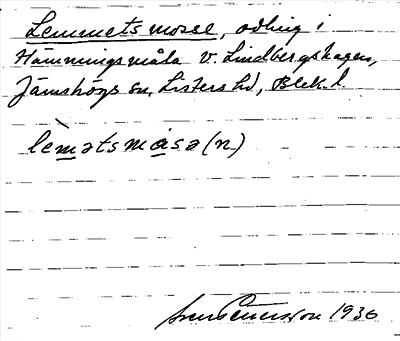 Lemmets mosse, odling i
Hämmingsmåla v. Lindbergshagen,
Jämshögs sn, Listers hd, Blek. l.
lèmatsmåsa (n)
Sven Enersson 1936